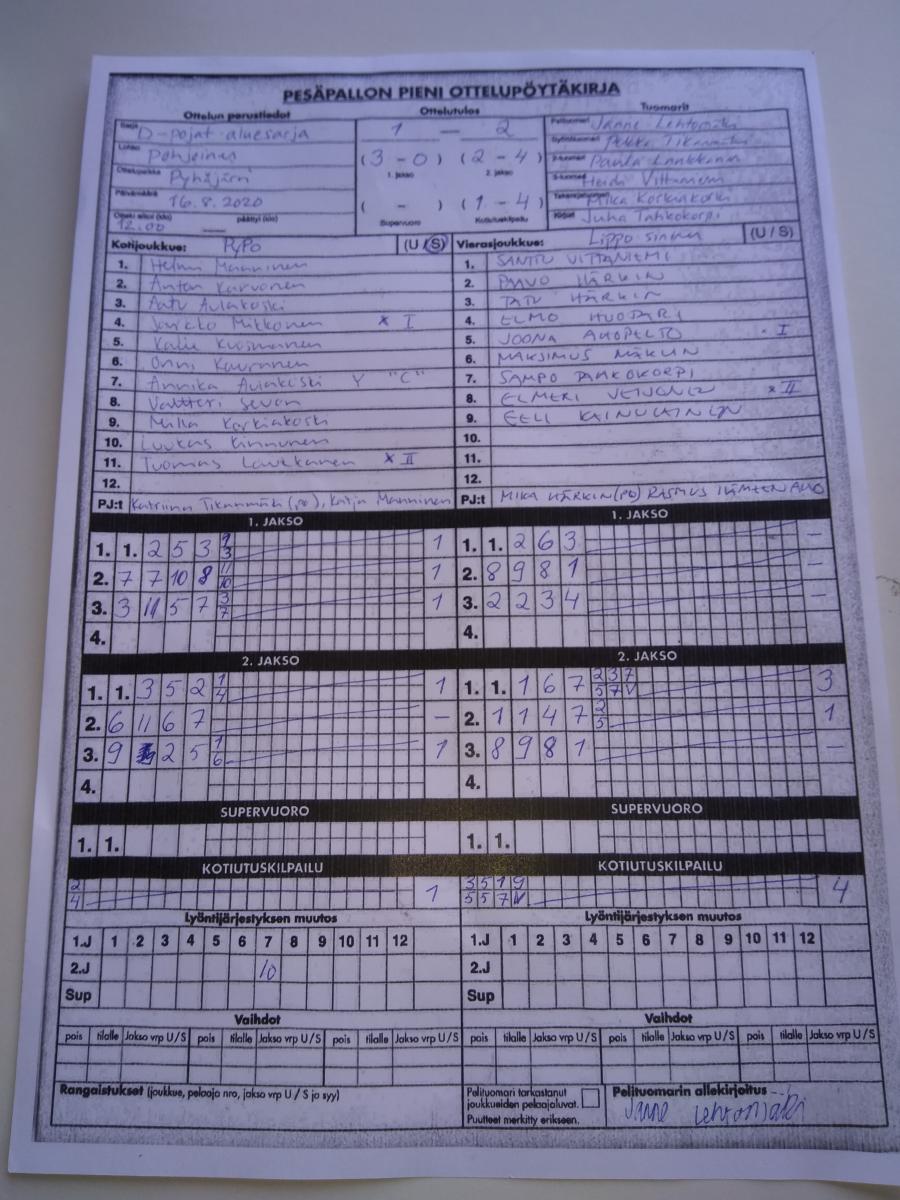 PESÄPALLON PIENI OTTELUPÖYTÄKIRJA
Ottelun perustiedot
Ottelutulos
Tuomarit
Sarja D-pojat aluesarja
Lohko Pohjoinen
Ottelupaikka Pyhäjärvi
Päivämäärä 16.8.2020
Ottelu alkoi (klo) päättyi (klo)
12.00 —
1 — 2
(3 - 0) (2 - 4)
1. jakso 2. jakso
( - ) (1 - 4)
Supervuoro Kotiutuskilpailu
Pelituomari Janne Lehtomäki
Pekka Tikanmäki
Paula Laukkanen
Heidi Vittaniemi
Mika Korkiakoski
Juha Tahkokorpi
Kotijoukkue: PyPo (U/S)
1. Helmi Manninen
2. Anton Karvonen
3. Aatu Aulakoski
4. Jarkko Mikkonen x I
5. Kalle Kuosmanen
6. Onni Kauranen
7. Annika Aulakoski Y "C"
8. Valtteri Sevon
9. Milla Korkiakoski
10. Luukas Kinnunen
11. Tuomas Laukkanen x II
12.
PJ:t Katriina Tikanmäki (po), Katja Manninen
Vierasjoukkue: Lippo sininen (U/S)
1. SANTTU VITTANIEMI
2. PAAVO HÄRKIN
3. TATU HÄRKIN
4. ELMO HUOTARI
5. JOONA AHOPELTO x I
6. MAKSIMUS
7. SAMPO TAHKOKORPI
8. ELMERI x II
9. EELI KAINULAINEN
10.
11.
12.
PJ:t MIKA HÄRKIN (PO) RASMUS
1. JAKSO
1. 1. 2 5 3 1 3 1
2. 7 7 10 8 11 10 1
3. 3 11 5 7 3 7 1
4.
1. JAKSO
1. 1. 2 6 3 —
2. 8 9 8 1 —
3. 2 2 3 4 —
4.
2. JAKSO
1. 1. 3 5 2 1 4 1
2. 6 11 6 7 —
3. 9 2 5 1 6 1
4.
2. JAKSO
1. 1. 1 6 7 2 3 7 5 7 V 3
2. 1 1 4 7 2 5 1
3. 8 9 8 1 —
4.
SUPERVUORO
1. 1.
SUPERVUORO
1. 1.
KOTIUTUSKILPAILU
2
4
1
KOTIUTUSKILPAILU
3 5 1 9
5 5 7 V
4
Lyöntijärjestyksen muutos
1.J 1 2 3 4 5 6 7 8 9 10 11 12
2.J 10
Sup
Lyöntijärjestyksen muutos
1.J 1 2 3 4 5 6 7 8 9 10 11 12
2.J
Sup
Vaihdot
pois tilalle Jakso vrp U/S pois tilalle Jakso vrp U/S pois tilalle Jakso vrp U/S
Vaihdot
pois tilalle Jakso vrp U/S pois tilalle Jakso vrp U/S pois tilalle Jakso vrp U/S
Rangaistukset (joukkue, pelaaja nro, jakso vrp U / S ja syy)
Pelituomari tarkastanut
joukkueiden pelaajaluvat.
Puutteet merkitty erikseen.
Pelituomarin allekirjoitus
Janne Lehtomäki